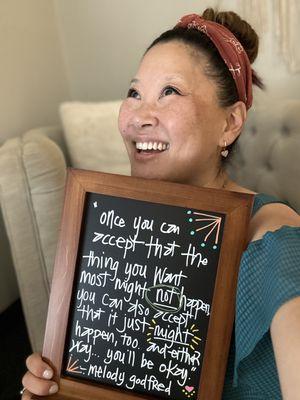 "Once you can
accept that the
thing you want
most might not happen,
you can also accept
that it just might
happen, too. and either
way... you'll be okay."
- melody godfred